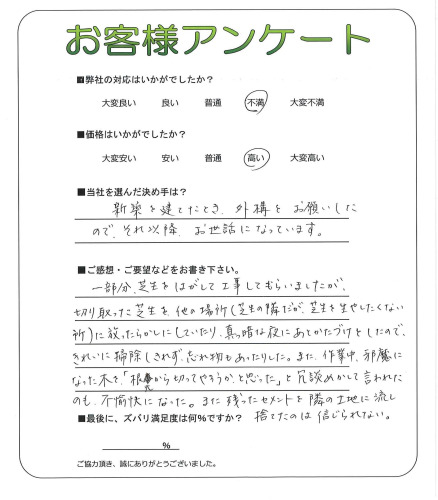 お客様アンケート
■弊社の対応はいかがでしたか？
大変良い 良い 普通 不満 大変不満
■価格はいかがでしたか？
大変安い 安い 普通 高い 大変高い
■当社を選んだ決め手は？
新築を建てたとき、外構をお願いした
ので、それ以降、お世話になっています。
■ご感想・ご要望などをお書き下さい。
一部分、芝生をはがして工事してもらいましたが、
切り取った芝生を、他の場所（芝生の隣だが、芝生を生やしたくない
所）に放ったらかしにしていたり、真暗な夜にあとかたづけをしたので、
きれいに掃除しきれず、忘れ物もあったりした。また、作業中、邪魔に
なった木を、「根元から切ってやろうか、と思った」と冗談めかして言われた
のも、不愉快になった。また残ったセメントを隣の土地に流し
捨てたのは信じられない。
■最後に、ズバリ満足度は何%ですか？
%
ご協力頂き、誠にありがとうございました。